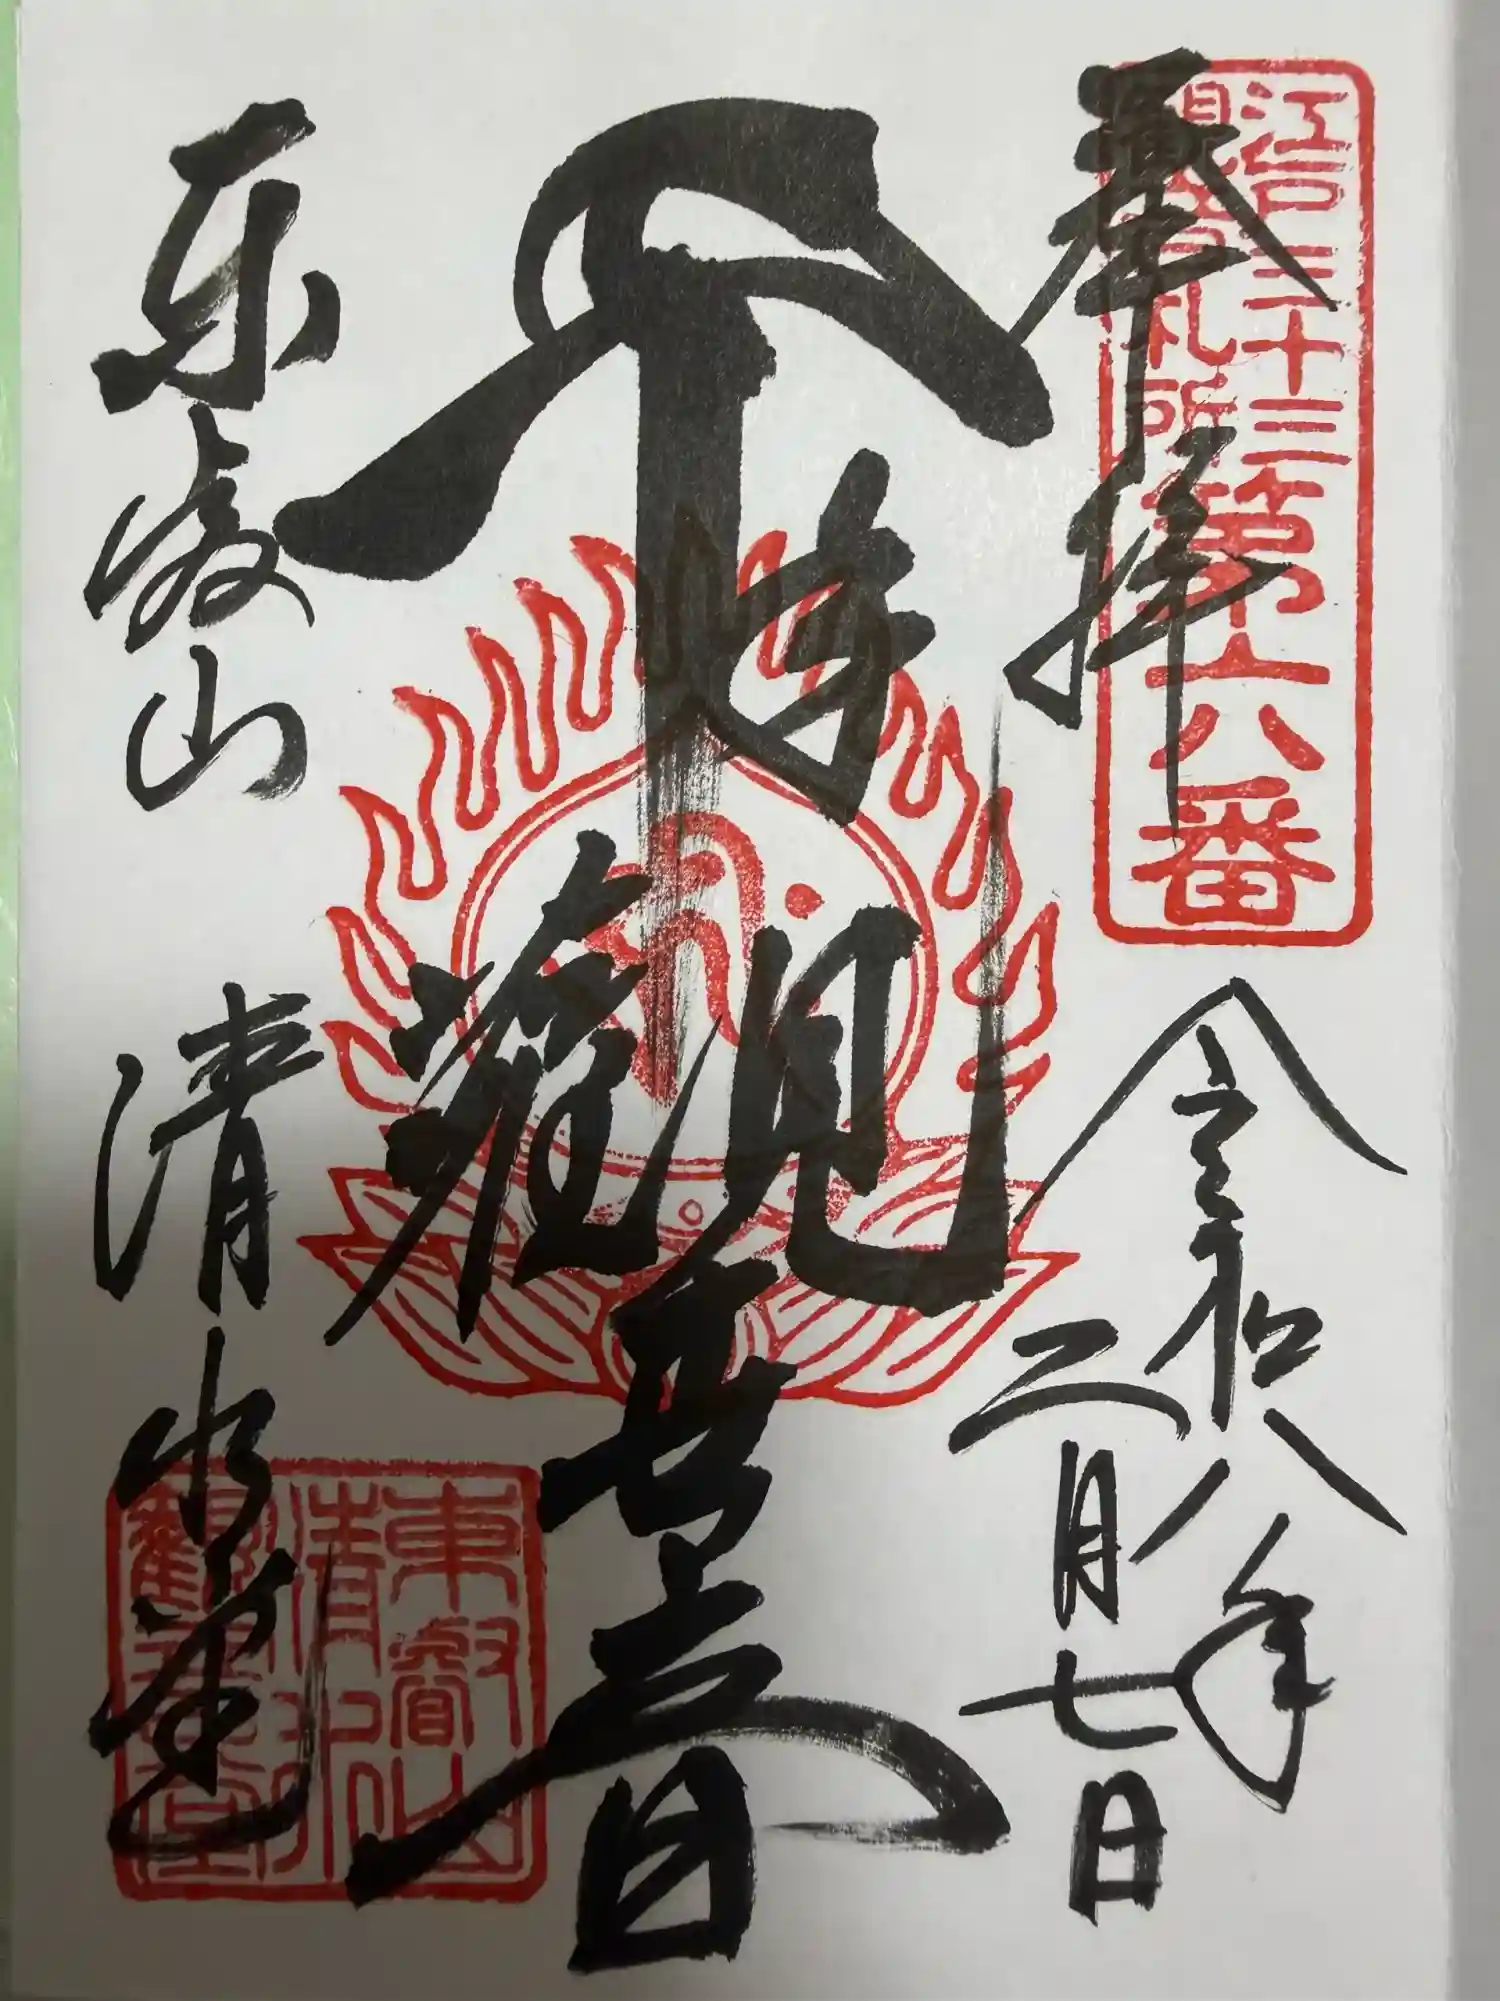 奉拝
江戸三十三
観音札所
第六番
令和八年
二月七日
千手
觀世音
东叡山
清水堂
東叡山
清水
觀音堂